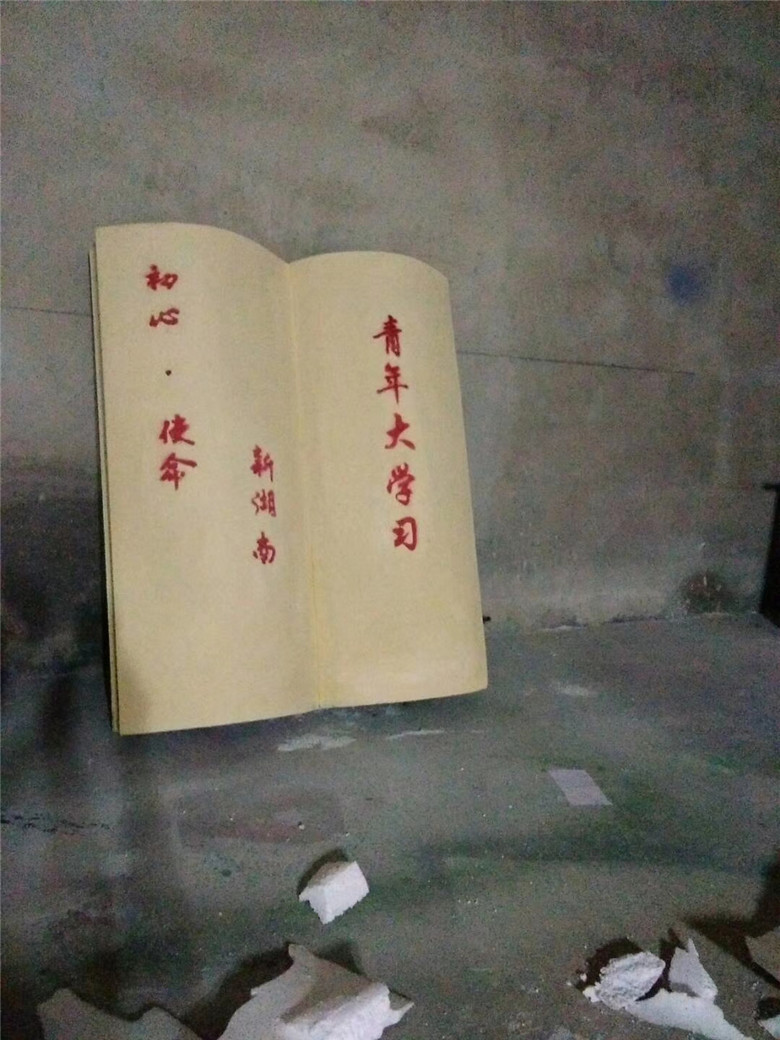 青年大学习
新湖南
初心·使命